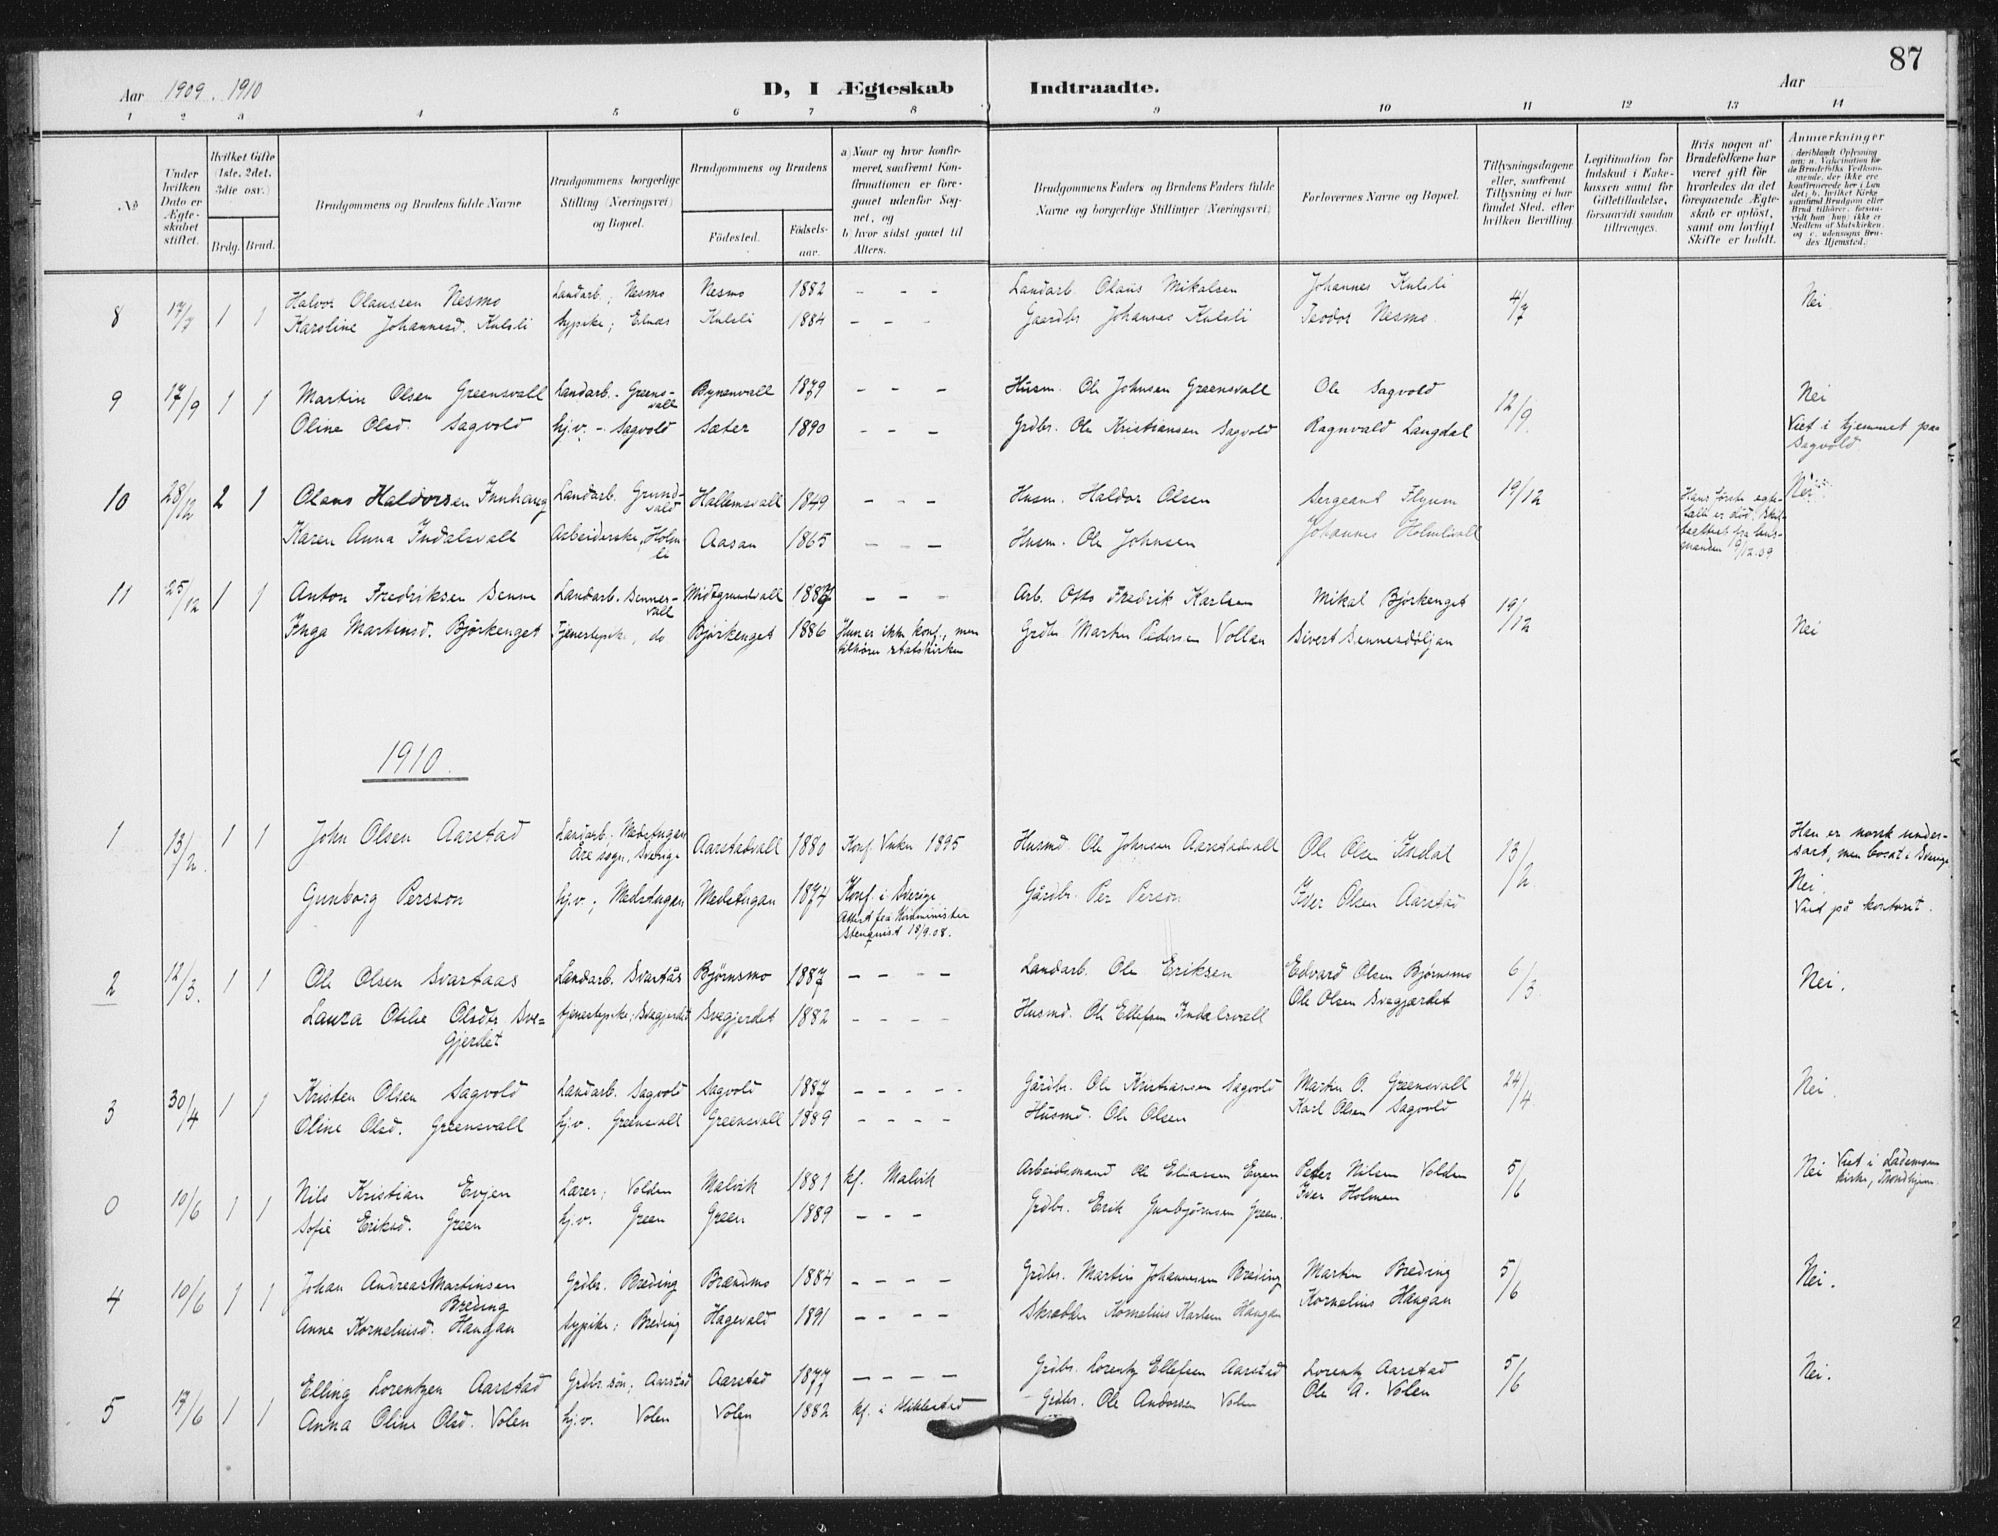 87
Aar 1909. 1910
D, I Ægteskab Indtraadte.
Aar
1 2 3 4 5 6 7 8 9 10 11 12 13 14
No
Under hvilken Dato er Ægteskabet stiftet.
Hvilket Gifte (1ste, 2det, 3die osv.)
Brdg. Brud.
Brudgommens og Brudens fulde Navne
Brudgommens borgerlige Stilling (Næringsvei) og Bopæl.
Brudgommens og Brudens
Fødested. Fødsels-aar.
a) Naar og hvor konfirmeret, saafremt Konfirmationen er foregaaet udenfor Sognet, og
b) hvor sidst gaaet til Alters.
Brudgommens Faders og Brudens Faders fulde Navne og borgerlige Stillinger (Næringsvei)
Forlovernes Navne og Bopæl.
Tillysningsdagene eller, saafremt Tillysning ei har fundet Sted, efter hvilken Bevilling.
Legitimation for Indskud i Enkekassen samt for Giftetilladelse, forsaavidt saadan tiltrænges.
Hvis nogen af Brudefolkene har været gift før hvorledes da det foregaaende Ægteskab er opløst, samt om lovligt Skifte er holdt.
Anmærkninger
8 17/7 1 1 Halvor Olaussen Nesmo Landarb.; Nesmo Nesmo 1882 – – – Landarb. Olaus Mikalsen Johannes Kulsli 4/7 Nei
Karoline Johannesd. Kulsli sypike; Elnæs Kulsli 1884 – – – Gaardbr Johannes Kulsli Teodor Nesmo.
9 17/9 1 1 Martin Olsen Greensvall Landarb. - Greensvall Bynenvall 1879 – – – Husm. Ole Johnsen Greensvall Ole Sagvold 12/9. Nei
Oline Olsd. Sagvold hj.v. - Sagvold Sæter 1890 – – – Grdbr. Ole Kristiansen Sagvold Ragnvald Langdal Viet i hjemmet paa Sagvold
10 28/12 2 1 Olaus Haldorsen Innhaug Landarb. Grundvald Hallemsvall 1849 – – – Husm. Haldor Olsen Sergeant Flyum 19/12 Hans første egteskab er død. Nei
Karen Anna Indalsvall Arbeiderske, Holmli Aasan 1865 – – – Husm. Ole Johnsen Johannes Holmlivall
11 25/12 1 1 Anton Fredriksen Senne Landarb. Sennesvall Midtgrundvall – – – Arb. Otto Fredrik Karlsen Mikal Bjørkenget 19/12 Nei
Inga Martinsd. Bjørkenget Tjenestepike, do Bjørkenget 1886 Hun er ikke konf., men tilhører statskirken Grdbr Martin Pedersen Vollan Sivert Sennesdøljan
1910.
1 13/2. 1 1 John Olsen Aarstad Landarb. - Medstugan Åre sogn, Sverige Aarstadvall 1880 Konf. Vuku 1895 Husmd. Ole Johnsen Aarstadvall Ole Olsen Indal 13/2 Han er norsk undersaat, men bosat i Sverige
Gunborg Persson hj.v.; Medstugan Medstugan 1874 Konf. i Sverige Attest fra Kirkminister Stenquist 18/9.08. Gårdbr. Per Person Iver Olsen Aarstad Nei. Viet på kontoret.
2 12/3. 1 1 Ole Olsen Svartaas Landarb. Svartås Bjørnsmo 1887 – – – – Landarb. Ole Eriksen Edvard Olsen Bjørnsmo 6/3. Nei.
Laura Otilie Olsdtr Svegjerdet tjenestepike; Svegjerdet Svegjerdet 1882 – – – – Husmd. Ole Ellefsen Indalsvall Ole Olsen Svegjærdet
3 30/4 1 1 Kristen Olsen Sagvold Landarb. Sagvold Sagvold 1887 – – – – Gårdbr. Ole Kristiansen Sagvold Martin O. Greensvall 24/4. Nei.
Oline Olsd. Greensvall hj.v. Greensvall Greensvall 1889 – – – – Husmd. Ole Olsen Karl Olsen Sagvold
0 10/6 1 1 Nils Kristian Evjen Lærer; Volden Malvik 1881 kf. Malvik Arbeidsmand Ole Eliassen Evjen Peter Nilsen Volden 5/6 Nei Viet i Lademoen kirke, Trondhjem.
Sofie Eriksd. Green hj.v. Green Green 1889 – – – Grdbr. Erik Gunbjørnsen Green. Iver Holmen
4 10/6 1 1 Johan Andreas Martinsen Breding Grdbr. Breding Brændmo 1884 – – – – Grdbr. Martin Johannessen Breding Martin Breding 5/6 Nei.
Anne Korneliusd. Haugan sypike; Breding Hagevald 1891 – – – – Skrædder Kornelius Karlsen Haugan Kornelius Haugan
5 17/6 1 1 Elling Lorentzen Aarstad Grdbr.søn; Aarstad Aarstad 1877 – – – – Grdbr. Lorentz Ellefsen Aarstad Lorentz Aarstad 5/6 Nei.
Anna Oline Olsd. Volen hj.v. Volen Volen 1882 kf. i Stiklestad Grdbr. Ole Andorsen Volen Ole A. Volen